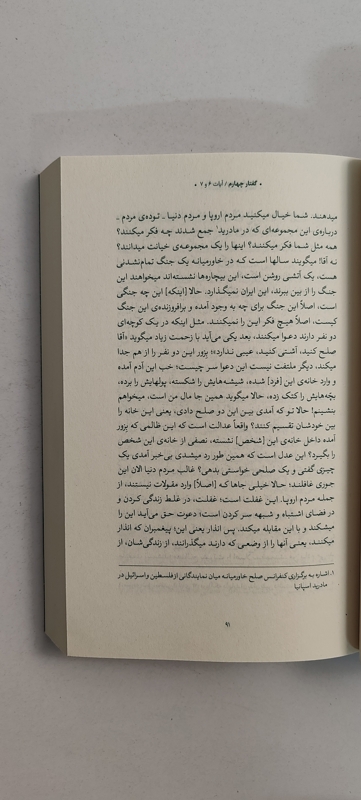 • گفتار چهارم / آیات ۶ و ۷ •
میدهند. شما خیال میکنید مردم اروپا و مردم دنیا ـ توده‌ی مردم ـ
درباره‌ی این مجموعه‌ای که در مادرید۱ جمع شدند چه فکر میکنند؟
همه مثل شما فکر میکنند؟ اینها را یک مجموعه‌ی خیانت میدانند؟
نه آقا! میگویند سالها است که در خاورمیانه یک جنگ تمام‌نشدنی
هست، یک آتشی روشن است، این بیچاره‌ها نشسته‌اند میخواهند این
جنگ را از بین ببرند، این ایران نمیگذارد. حالا [اینکه] این چه جنگی
است، اصلاً این جنگ برای چه به وجود آمده و برافروزنده‌ی این جنگ
کیست، اصلاً هیچ فکر این را نمیکنند. مثل اینکه در یک کوچه‌ای
دو نفر دارند دعوا میکنند، بعد یکی می‌آید با زحمت زیاد میگوید «آقا
صلح کنید، آشتی کنید، عیبی ندارد»؛ بزور این دو نفر را از هم جدا
میکند، دیگر ملتفت نیست این دعوا سر چیست؛ خب این آدم آمده
و وارد خانه‌ی این [فرد] شده، شیشه‌هایش را شکسته، پولهایش را برده،
بچّه‌هایش را کتک زده، حالا میگوید همین جا مال من است، میخواهم
بنشینم! حالا تو که آمدی بین این دو صلح دادی، یعنی این خانه را
بین خودشان تقسیم کنند؟ واقعاً عدالت است که این ظالمی که بزور
آمده داخل خانه‌ی این [شخص] نشسته، نصفی از خانه‌ی این شخص
را بگیرد؟ این عدل است که همین طور رد میشدی بی‌خبر آمدی یک
چیزی گفتی و یک صلحی خواستی بدهی؟ غالب مردم دنیا الان این
جوری غافلند؛ حالا خیلی جاها که [اصلاً] وارد مقولات نیستند، از
جمله مردم اروپا. این غفلت است؛ غفلت، در غلط زندگی کردن و
در فضای اشتباه و شبهه سر کردن است؛ دعوت حق می‌آید این را
میشکند و با این مقابله میکند. پس انذار یعنی این؛ پیغمبران که انذار
میکنند، یعنی آنها را از وضعی که دارند میگذرانند، از زندگی‌شان، از
۱. اشاره به برگزاری کنفرانس صلح خاورمیانه میان نمایندگانی از فلسطین و اسرائیل در
مادرید اسپانیا
۹۱